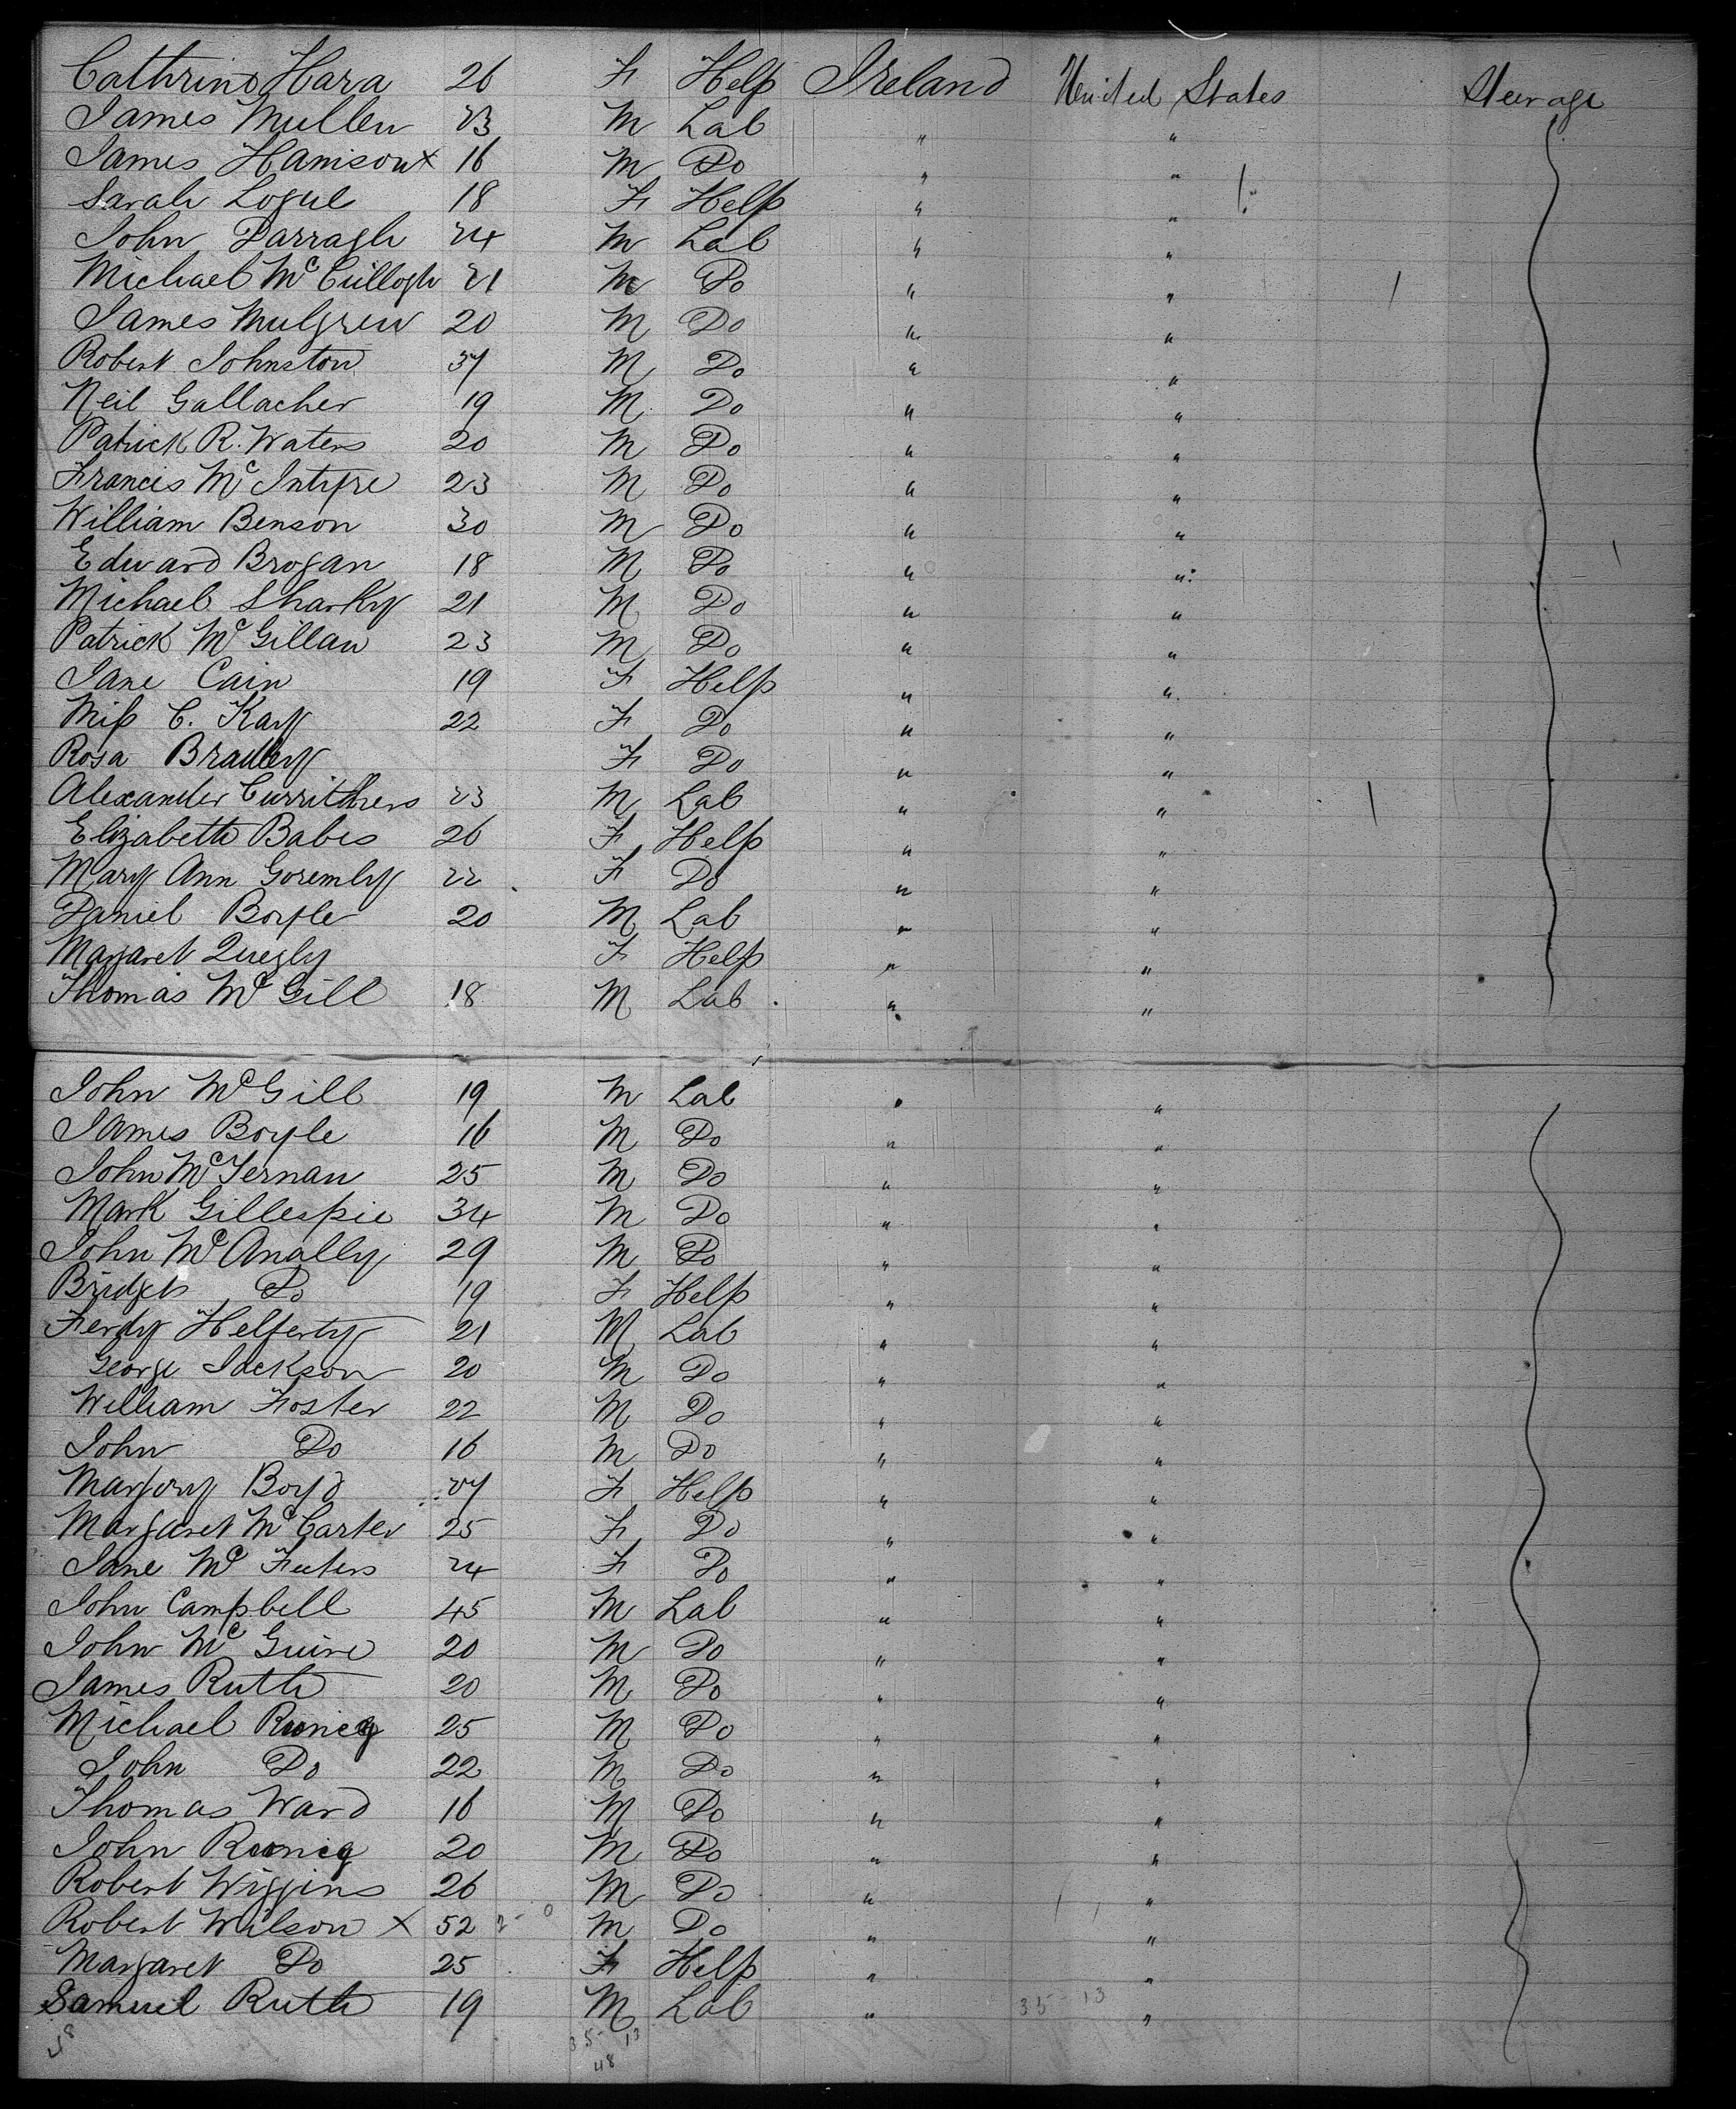 Cathrine Hara 26 F Help Ireland United States Steerage
James Mullen 23 M Lab " "
James Hamison x 16 M Do " "
Sarah Logue 18 F Help " "
John Darragh 24 M Lab " "
Michael McCullogh 21 M Do " "
James Mulgrew 20 M Do " "
Robert Johnston 37 M Do " "
Neil Gallacher 19 M Do " "
Patrick R. Waters 20 M Do " "
Francis McIntyre 23 M Do " "
William Benson 30 M Do " "
Edward Brogan 18 M Do " "
Michael Sharky 21 M Do " "
Patrick McGillan 23 M Do " "
Jane Cain 19 F Help " "
Miss C. Kay 22 F Do " "
Rosa Bradley F Do " "
Alexander Currithers 23 M Lab " "
Elizabeth Babes 26 F Help " "
Mary Ann Goremly 22 F Do " "
Daniel Boyle 20 M Lab " "
Margaret Quegly F Help " "
Thomas McGill 18 M Lab " "
John McGill 19 M Lab " "
James Boyle 16 M Do " "
John McTernan 25 M Do " "
Mark Gillespie 34 M Do " "
John McAnally 29 M Do " "
Bridget Do 19 F Help " "
Ferdy Helferty 21 M Lab " "
George Jackson 20 M Do " "
William Foster 22 M Do " "
John Do 16 M Do " "
Marjory Boyd 27 F Help " "
Margaret McCarter 25 F Do " "
Jane McFeeters 24 F Do " "
John Campbell 45 M Lab " "
John McGuire 20 M Do " "
James Ruth 20 M Do " "
Michael 25 M Do " "
John Do 22 M Do " "
Thomas Ward 16 M Do " "
John 20 M Do " "
Robert Wiggins 26 M Do " "
Robert Wilson x 52 M Do " "
Margaret Do 25 F Help " "
Samuel Ruth 19 M Lab " 35-13 "
35-13
48